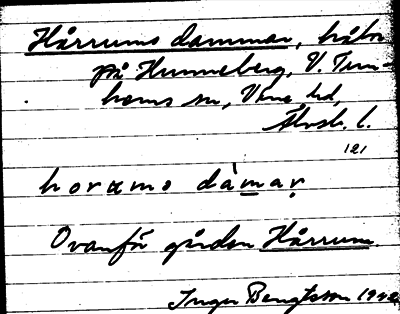 Hårrums dammar,
på Hunneberg, V. Tun-
hems sn, Väne hd,
Älvsb. l.
121
horums dàmar
Ovanför gården Hårrum.
Inger Bengtsson 1942